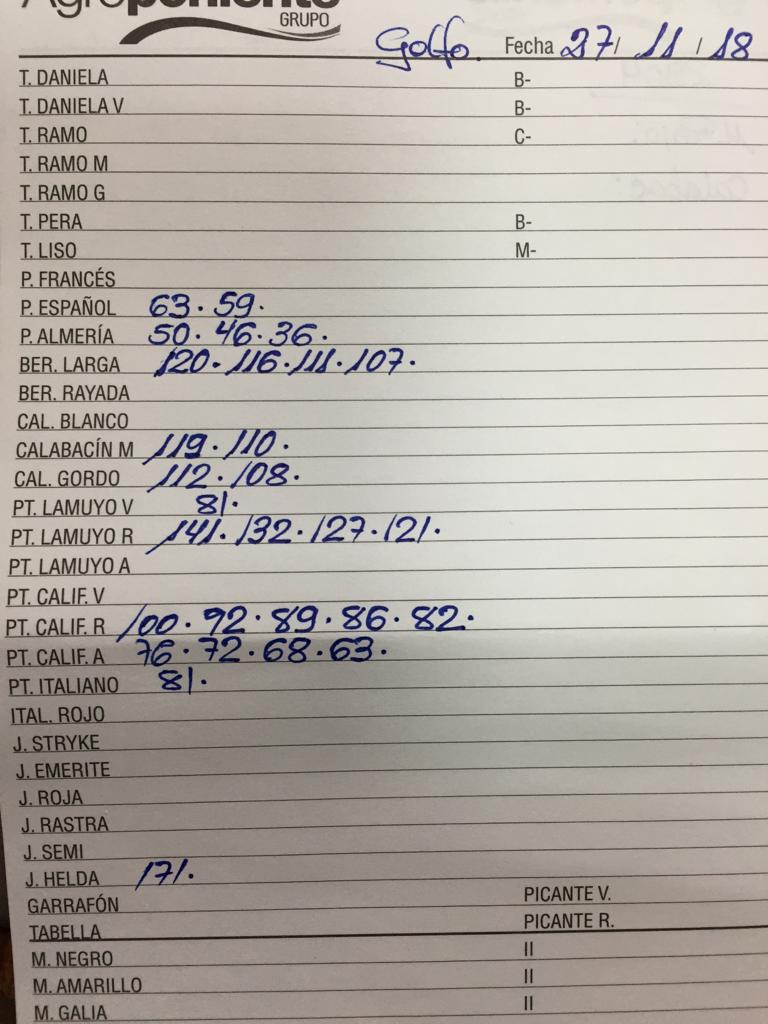 Agroponiente
GRUPO
Golfo. Fecha 27/ 11 / 18
T. DANIELA B-
T. DANIELA V B-
T. RAMO C-
T. RAMO M
T. RAMO G
T. PERA B-
T. LISO M-
P. FRANCÉS
P. ESPAÑOL 63. 59.
P. ALMERÍA 50. 46. 36.
BER. LARGA 120. 116. 111. 107.
BER. RAYADA
CAL. BLANCO
CALABACÍN M 119. 110.
CAL. GORDO 112. 108.
PT. LAMUYO V 81.
PT. LAMUYO R 141. 132. 127. 121.
PT. LAMUYO A
PT. CALIF. V
PT. CALIF. R 100. 92. 89. 86. 82.
PT. CALIF. A 76. 72. 68. 63.
PT. ITALIANO 81.
ITAL. ROJO
J. STRYKE
J. EMERITE
J. ROJA
J. RASTRA
J. SEMI
J. HELDA 171.
GARRAFÓN PICANTE V.
TABELLA PICANTE R.
M. NEGRO II
M. AMARILLO II
M. GALIA II